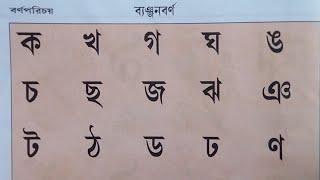 বর্ণপরিচয় ব্যঞ্জনবর্ণ
ক খ গ ঘ ঙ
চ ছ জ ঝ ঞ
ট ঠ ড ঢ ণ